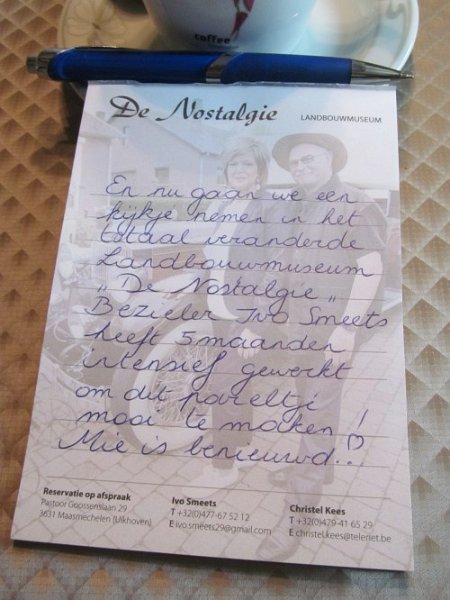 coffee
De Nostalgie LANDBOUWMUSEUM
En nu gaan we een
kijkje nemen in het
totaal veranderde
Landbouwmuseum
„ De Nostalgie „
Bezieler Ivo Smeets
heeft 5 maanden
intensief gewerkt
om dit pareltje
mooi te maken!
Mie is benieuwd..!
Reservatie op afspraak
Pastoor Goossenslaan 29
3631 Maasmechelen (Uikhoven)
Ivo Smeets
T +32(0)477-67 52 12
E ivo.smeets29@gmail.com
Christel Kees
T +32(0)479-41 65 29
E christel.kees@telenet.be